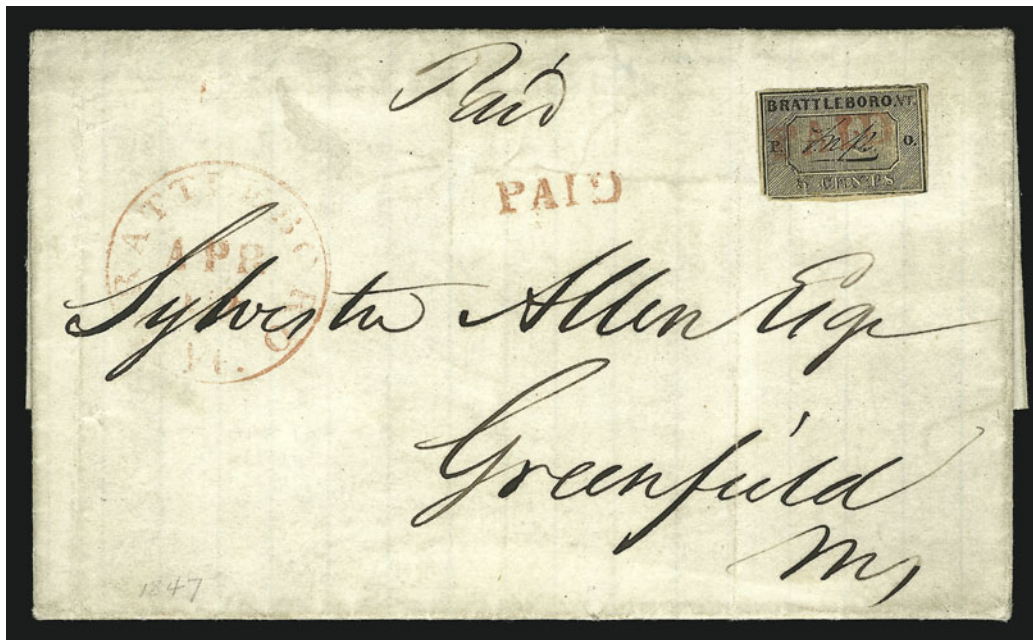 Paid
BRATTLEBORO, VT.
PAID
P. O.
5 CENTS
PAID
BRATTLEBORO
APR
Vt.
Sylvester Allen Esqr
Greenfield
Ms
1847